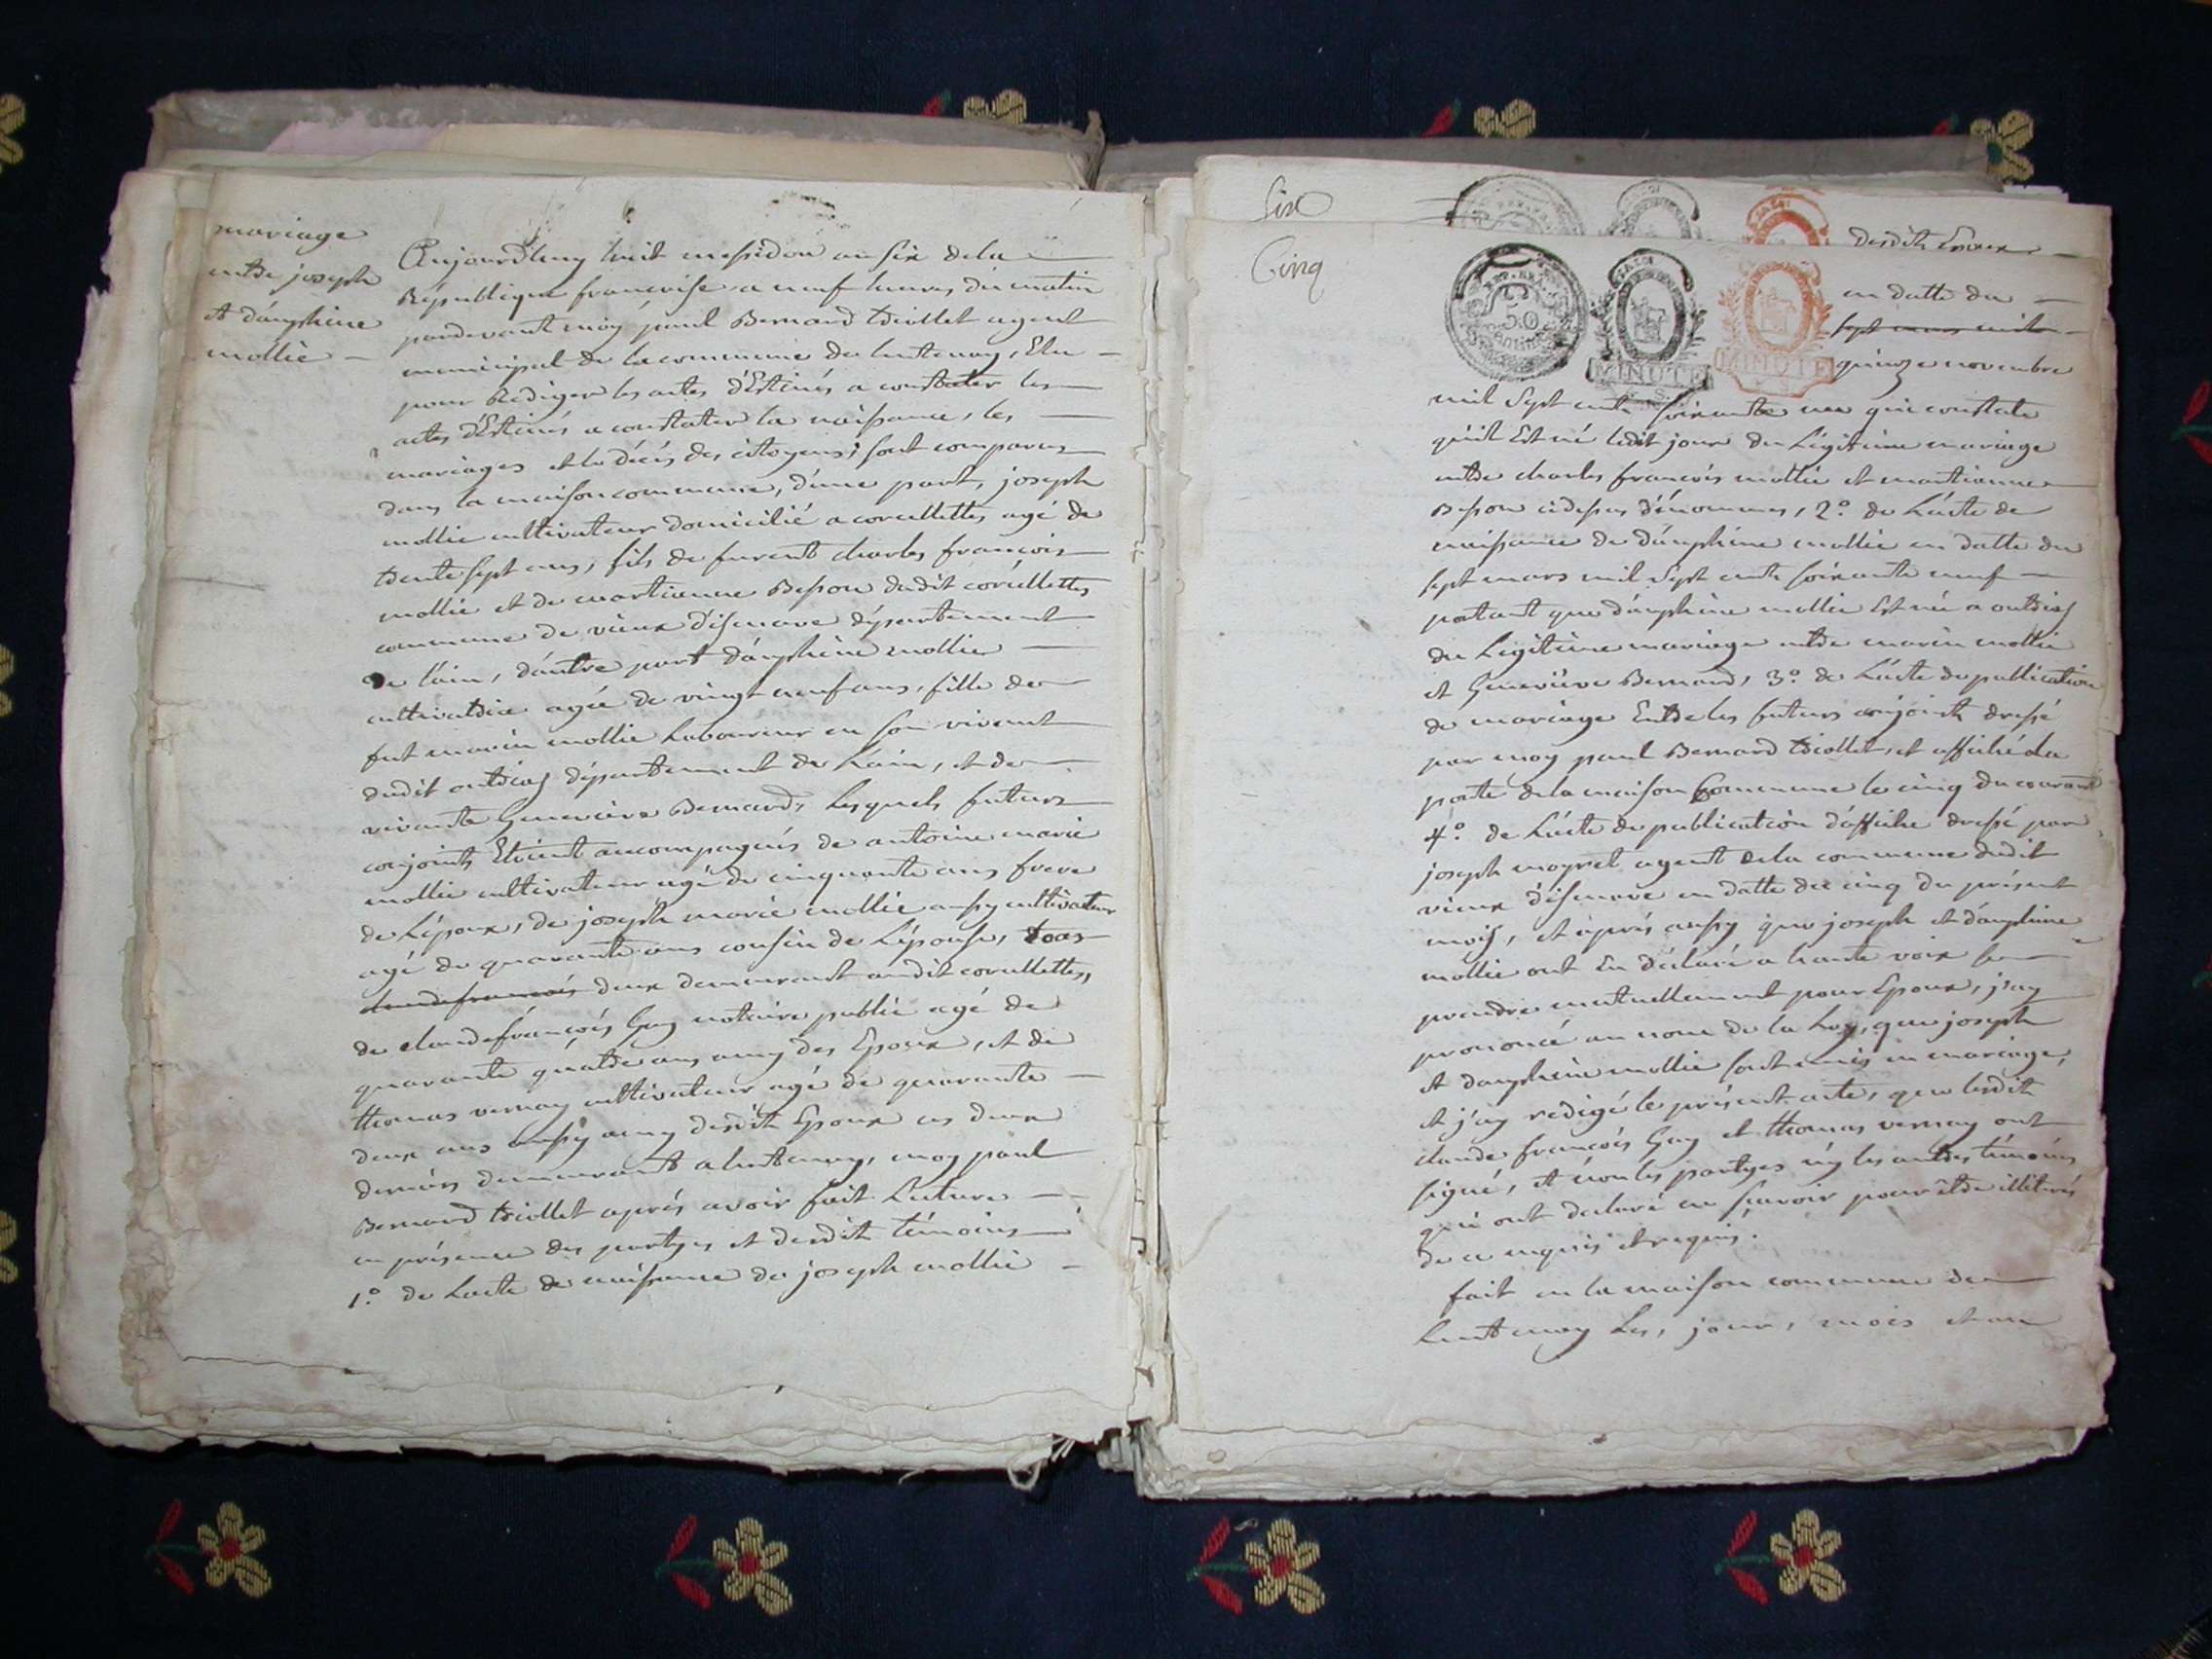 mariage
entre joseph
et dauphine
mollie
Aujourd'huy huit messidor an six de la
République francoise a neuf heures du matin
pardevant moy paul Bernard triollet agent
municipal de la commune de lantenay, Elu
pour Rediger les actes d'Estinés a constater les
actes d'Estinés a constater la naissance, les
mariages et le décés des citoyens; sont comparus
dans la maison commune, d'une part, joseph
mollie cultivateur domicilié a corcellettes agé de
trente sept ans, fils de furent charles francois
mollie et de martianne Besson dudit corcellettes
commune de vieux d'isenave département
de lain, dautre part dauphine mollie
cultivatrice agée de vingt neuf ans, fille de
fut marin mollie Laboureur en son vivant
dudit outriaz département de Lain, et de
vivante Genevieve Bernard, lesquels futurs
conjoints Etoient accompagnés de antoine marie
mollie cultivateur agé de cinquante ans frere
de L'époux, de joseph marie mollie aussy cultivateur
agé de quarante ans cousin de L'épouse, tous
claude francois deux demeurant audit corcellettes,
de claude francois Guy notaire public agé de
quarante quatre ans amy des Epoux, et de
thomas vernay cultivateur agé de quarante
deux ans aussy amy desdit Epoux ces deux
derniers demeurants a lantenay, moy paul
Bernard triollet aprés avoir fait Lecture
en présence des partyes et desdit témoins
1.° de Lacte de naissance de joseph mollie
Six
desdits Epoux
Cinq
REP. FRA.
50
centimes
MINUTE
MINUTE
en datte du
sept mars mil
quinze novembre
mil sept cents soixante un qui constate
qu'il Est né ledit jour du Légitime mariage
entre charles francois mollie et martianne
Besson cidessus dénommés, 2.° de L'acte de
naissance de dauphine mollie en datte du
sept mars mil sept cents soixante neuf
portant que dauphine mollie Est née a outriaz
du Légitime mariage entre marin mollie
et Genevieve Bernard, 3.° de L'acte de publication
de mariage Entre les futurs conjoints dressé
par moy paul Bernard triollet, et affiché a la
porte de la maison Commune le cinq du courant
4.° de L'acte de publication d'affiche dressé par
joseph moyret agent de la commune dudit
vieux d'isenave en datte du cinq du présent
mois, et aprés aussy que joseph et dauphine
mollie ont Eu déclaré a haute voix se
prendre mutuellement pour Epoux, j'ay
prononcé au nom de la Loy, que joseph
et dauphine mollie sont unis en mariage,
et j'ay redigé le présent acte, que lesdit
claude francois Guy et thomas vernay ont
signé, et non les partyes ny les autres témoins
qui ont declaré ne scavoir pour être illitérés
de ce enquis et requis.
fait en la maison commune de
Lantenay Les, jour, mois et an